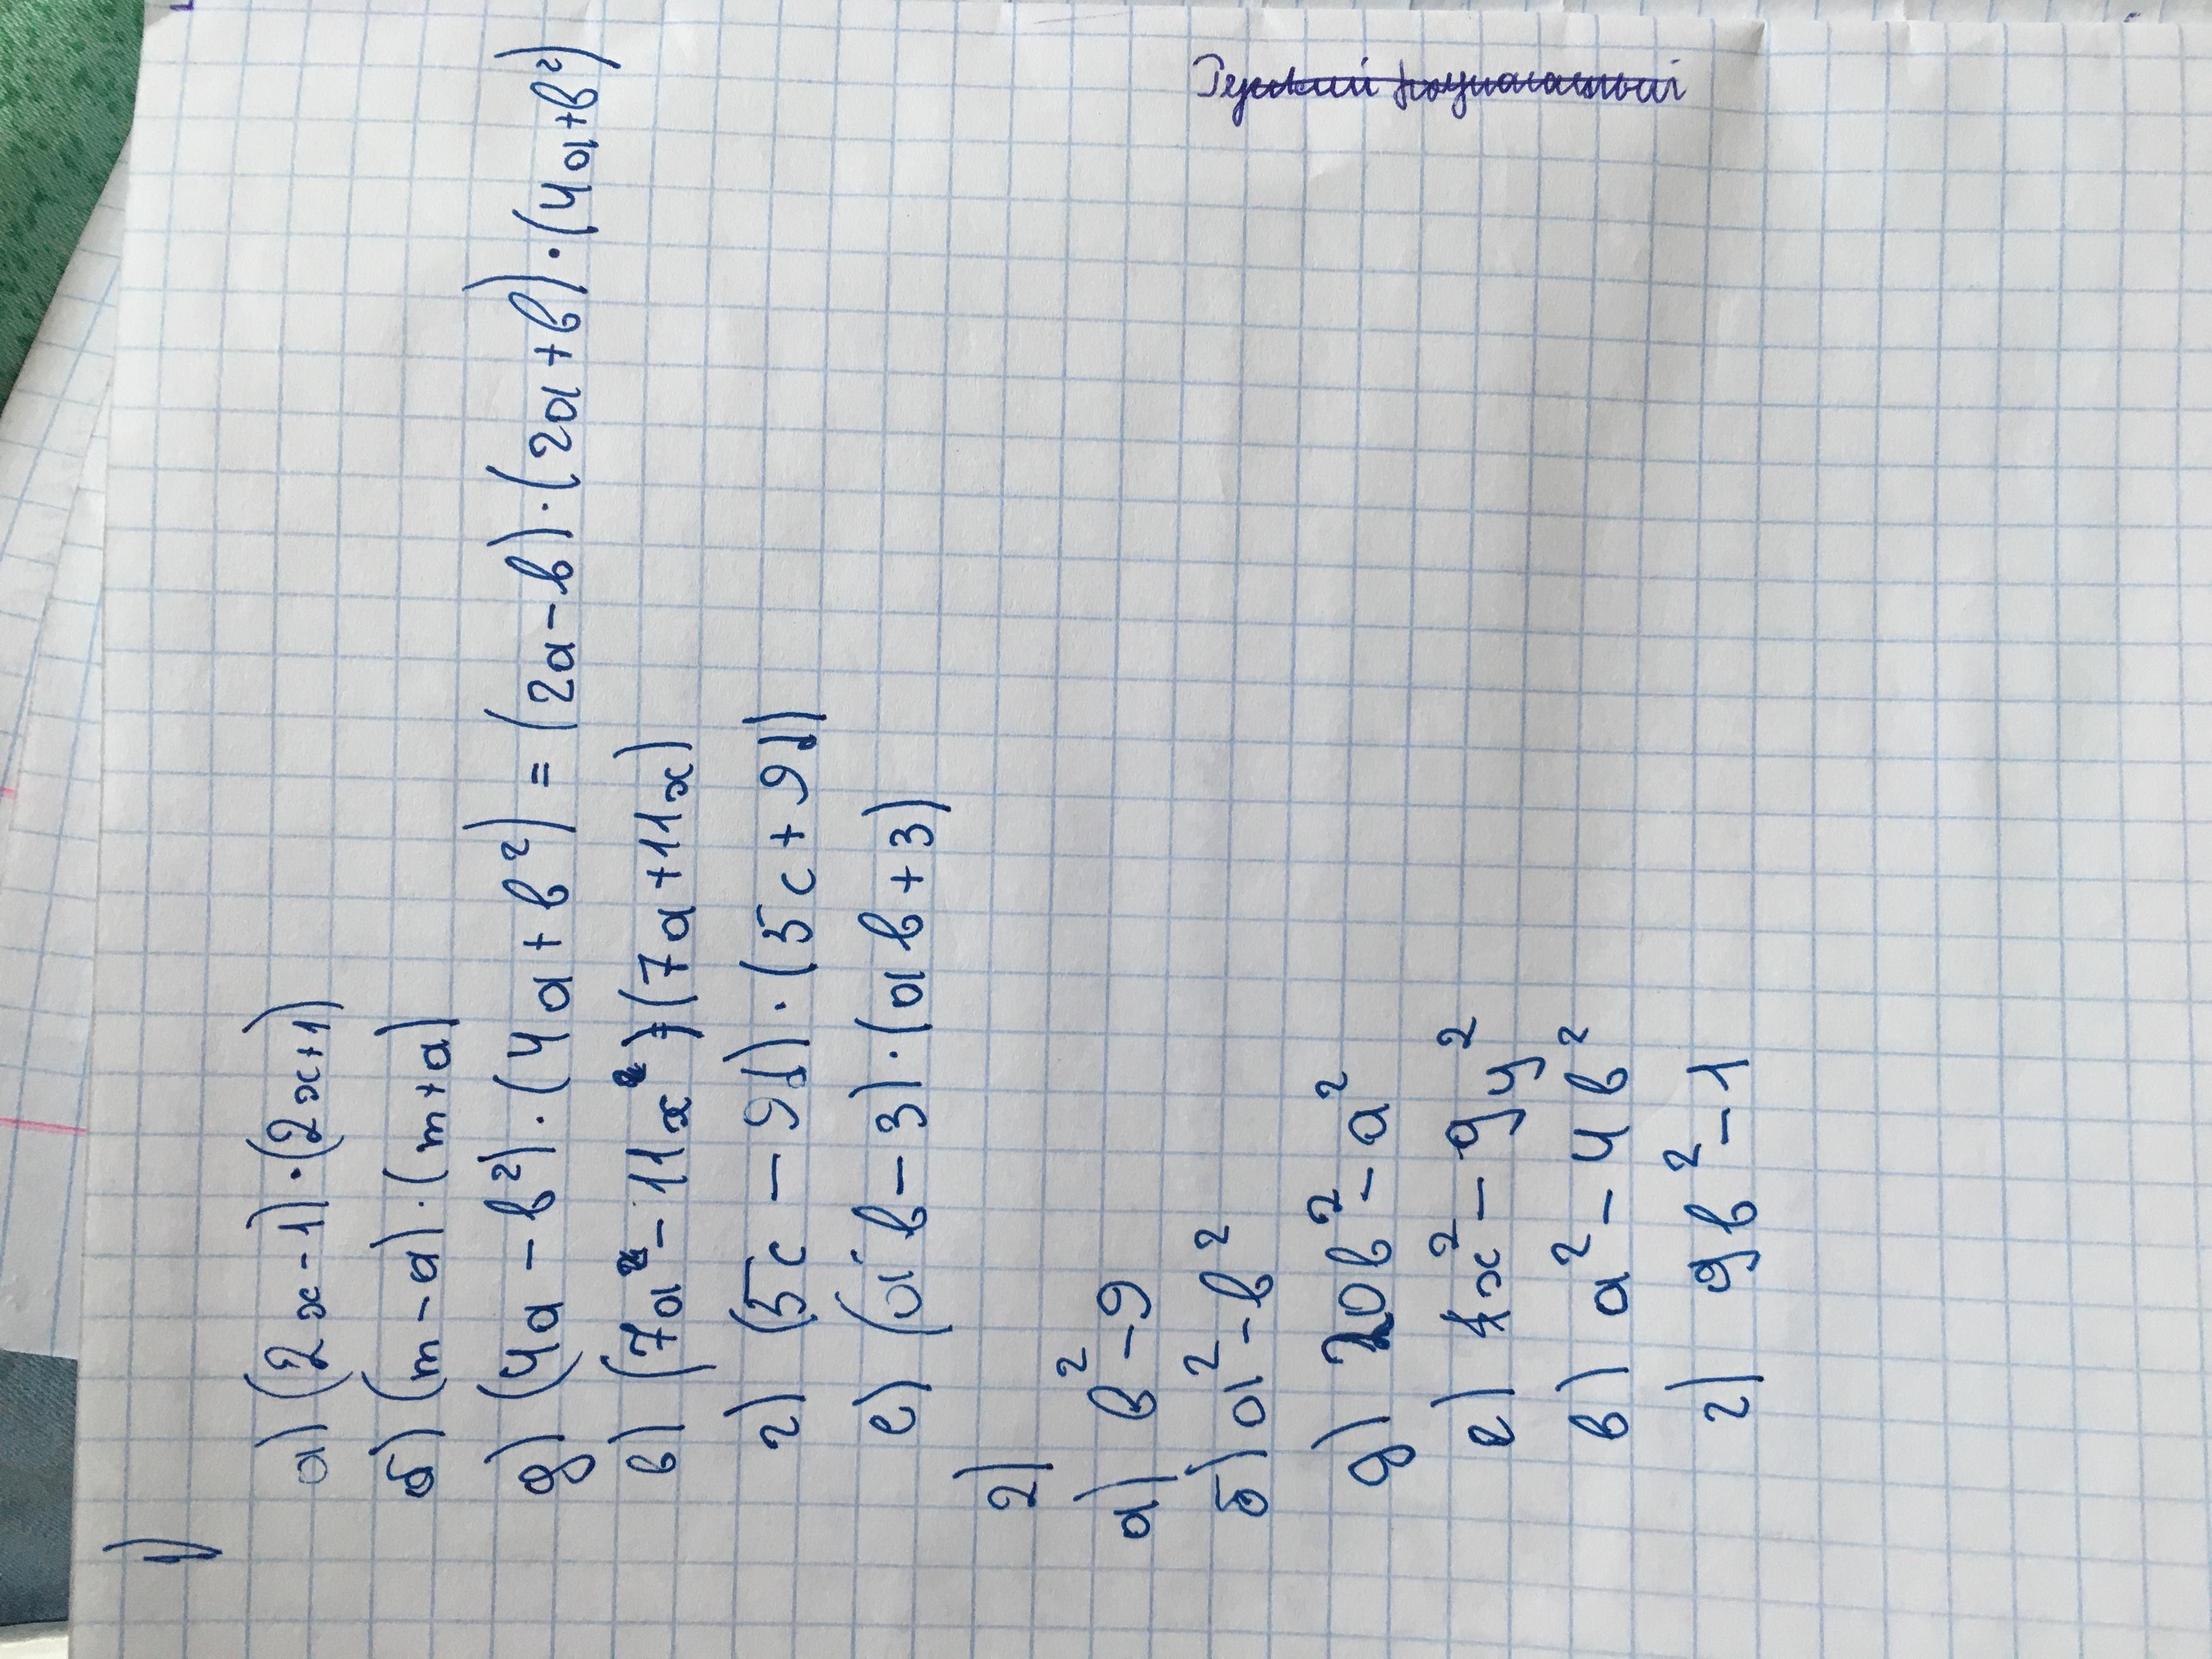 1)
а) (2x-1)·(2x+1)
б) (m-a)·(m+a)
д) (4a-b²)·(4a+b²) = (2a-b)·(2a+b)·(4a+b²)
в) (7a-11x)·(7a+11x)
г) (5c-9d)·(5c+9d)
е) (ab-3)·(ab+3)
2)
а) b²-9
б) a²-b²
д) b²-a²
е) x²-9y²
в) a²-4b²
г) 9b²-1